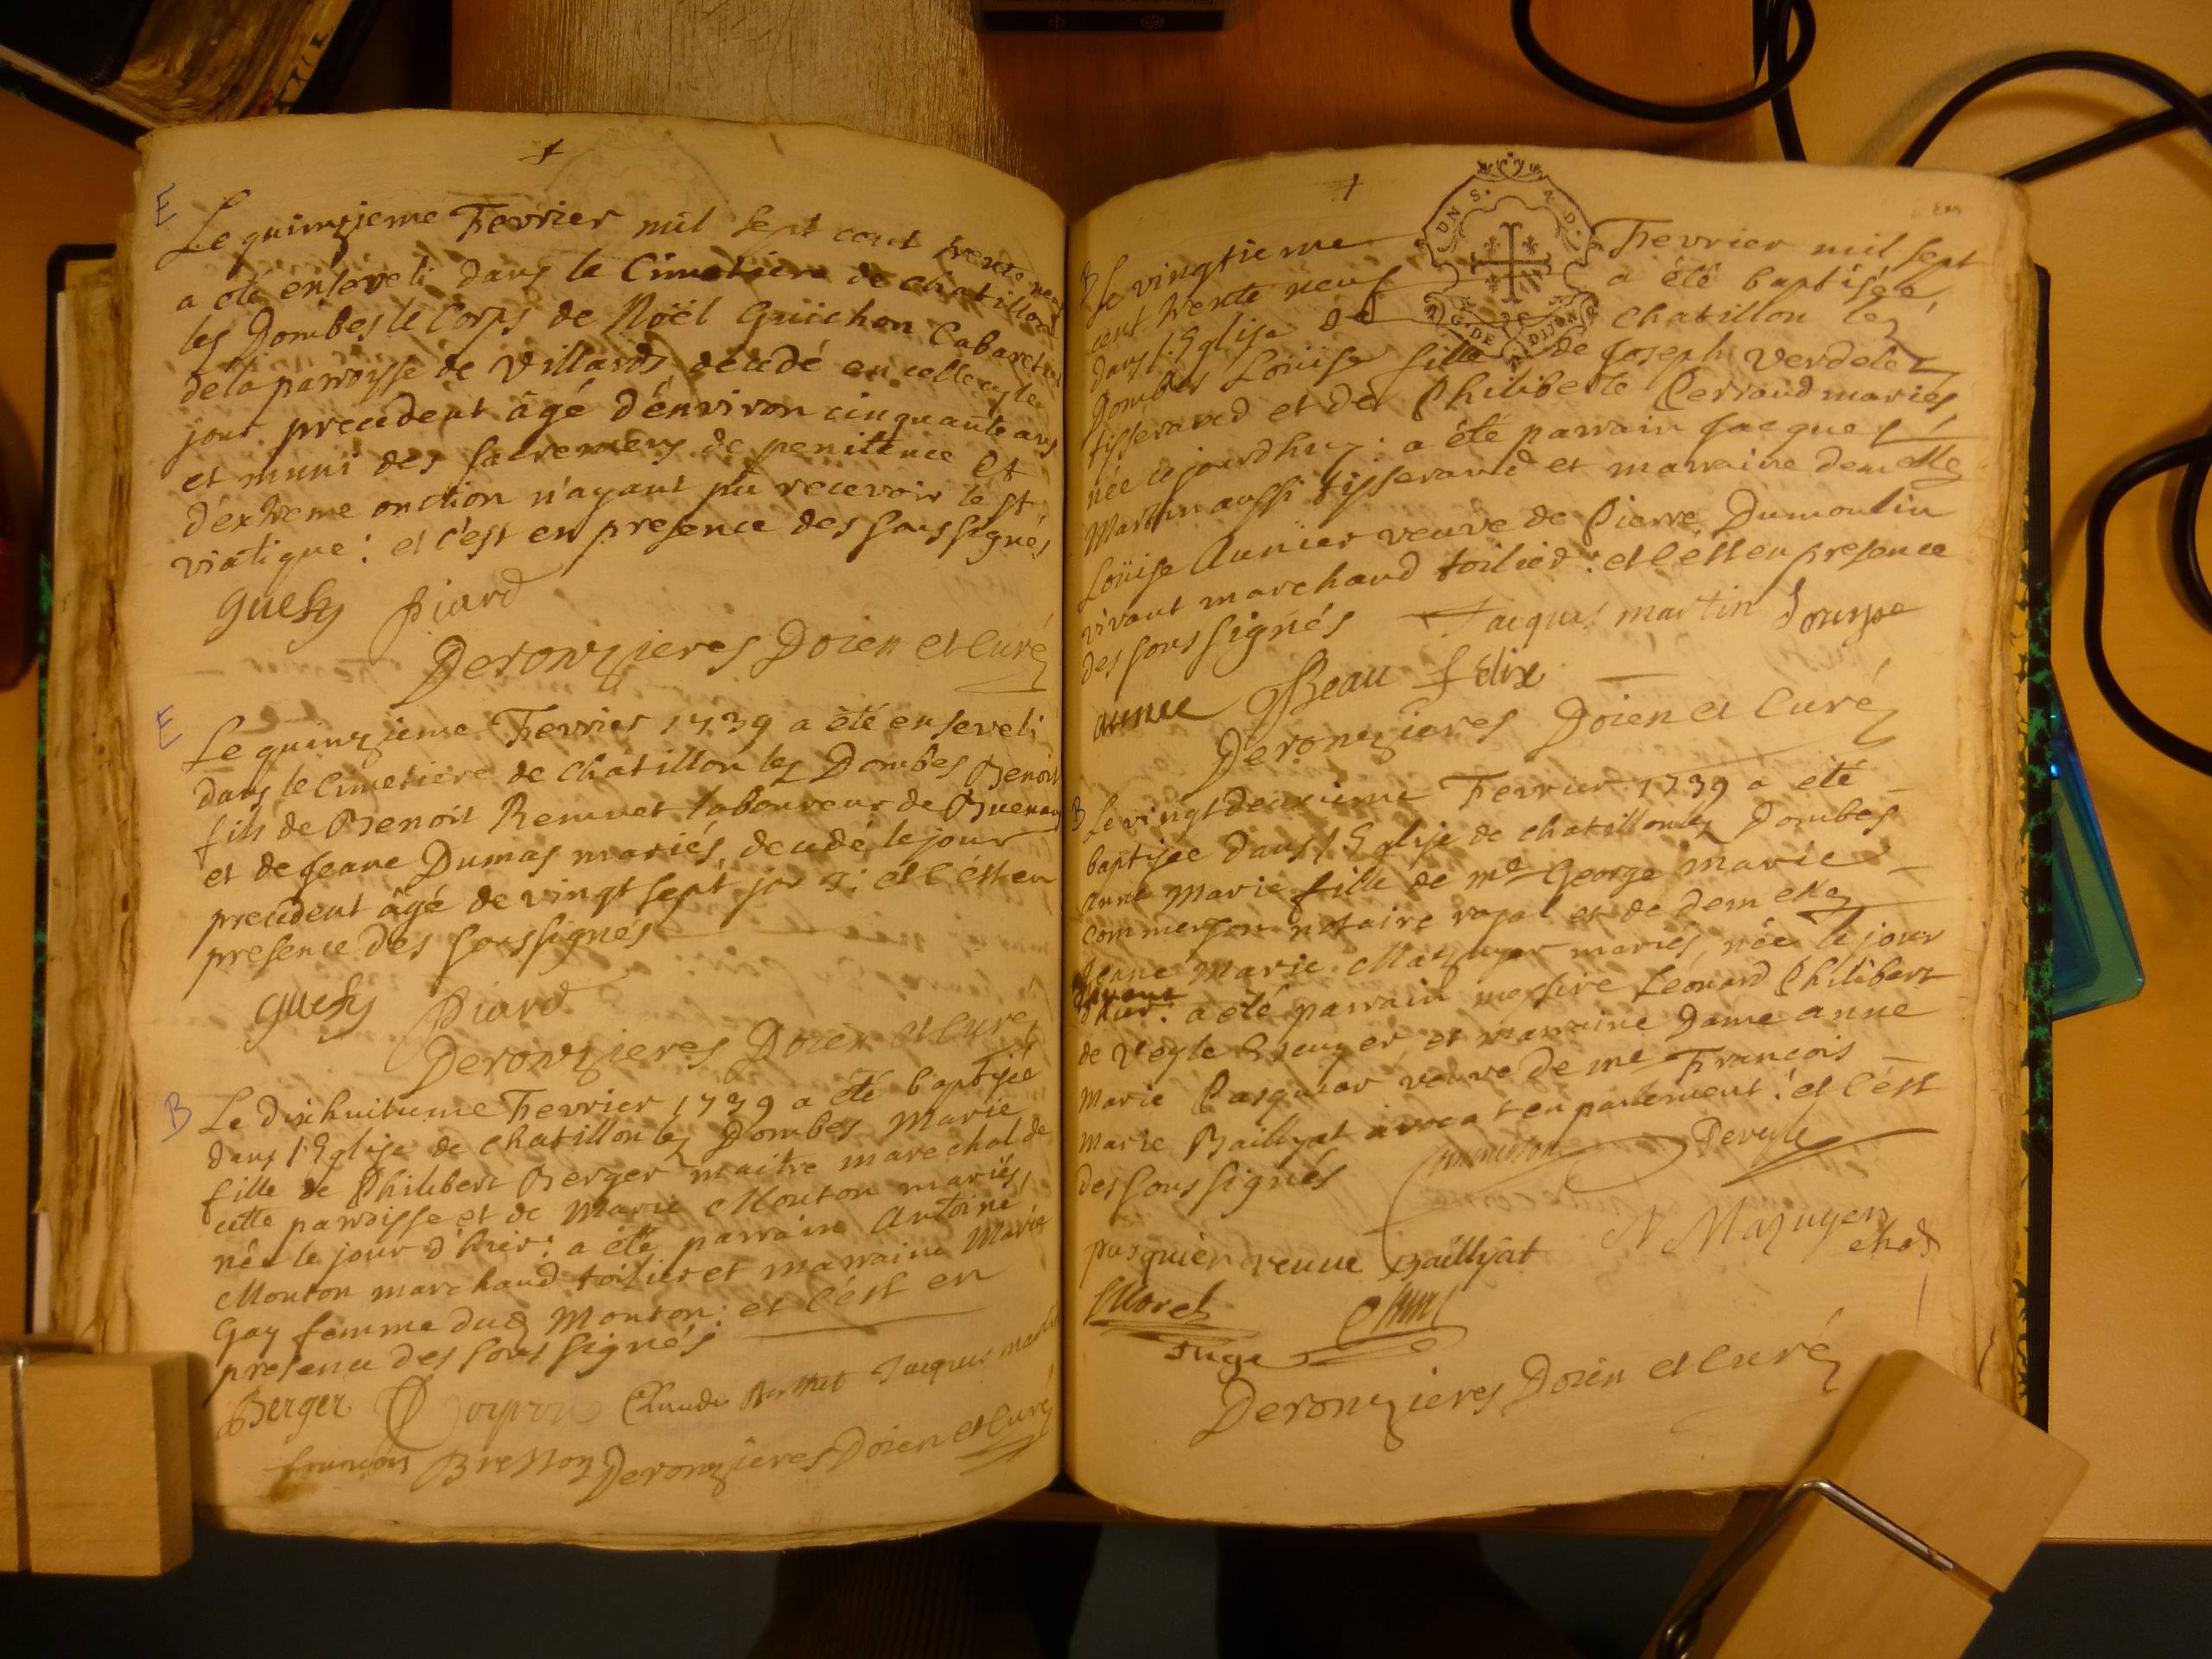 E
Le quinzieme Fevrier mil sept cent trente neuf
a été enseveli dans le Cimetiere de chatillon
les Dombes le Corps de Noël Guichon Cabaretier
de la parroisse de Villards decedé en celle cy le
jour precedent âgé d'énviron cinquante ans
et muni des sacremens de penitence et
d'éxtreme onction n'ayant pû recevoir le st
viatique : et c'est en presence des soussignés
Guesty Piard
Deronzieres Doien et Curé
E
Le quinzieme Fevrier 1739 a été enseveli
dans le Cimetiere de chatillon lez Dombes Benoit
fils de Benoit Remuet laboureur de Buenans
et de Jeane Dumas mariés, decedé le jour
precedent âgé de vingt sept jours : et c'ést en
presence des soussignés
Guesty Piard
Deronzieres Doien et Curé
B
Le dixhuitieme Fevrier 1739 a été baptisée
dans l'Eglise de chatillon lez Dombes Marie
fille de Philibert Berger maitre marechal de
cette parroisse et de Marie Monton mariés,
née le jour d'hier : a été parrain Antoine
Monton marchand toilier et marraine Marie
Gay femme dud Monton : et c'ést en
presence des soussignés
Berger Claude Berthet Jacques martin
francois Bresson Deronzieres Doien et Curé
B
Le vingtieme Fevrier mil sept
cent trente neuf a été baptisée,
dans l'Eglise de Chatillon lez
Dombes Loüise fille de Joseph Verdelet
tisserand et de Philiberte Perraud mariés,
née ce jourdhuy : a été parrain Jacques
Martin aussi tisserand et marraine demelle
Loüise Aunier veuve de Pierre Dumoulin
vivant marchand toilier : et c'ést en presence
des soussignés Jacques martin Louyse
aunie Beau felix
Deronzieres Doien et Curé
B
Le vingtdeuxieme Fevrier 1739 a été
baptisée dans l'Eglise de chatillon lez Dombes
Anne Marie fille de me George Marie
Commerson notaire royal et de demelle
Jeane Marie Mazuyer mariés, née le jour
d'hier : a été parrain messire Leonard Philibert
de Veyle Ecuyer et marraine Dame Anne
Marie Pasquier veuve de me François
Marie Baillyat avocat en parlement : et c'ést
des soussignés Commerson Deveyle
pasquier veuve Baillyat N Mazuyer
Morel
Juge
Deronzieres Doien et Curé